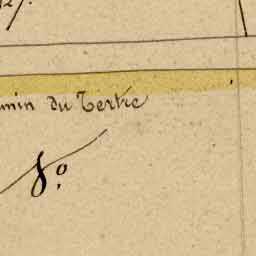 min du Tertre
8.°